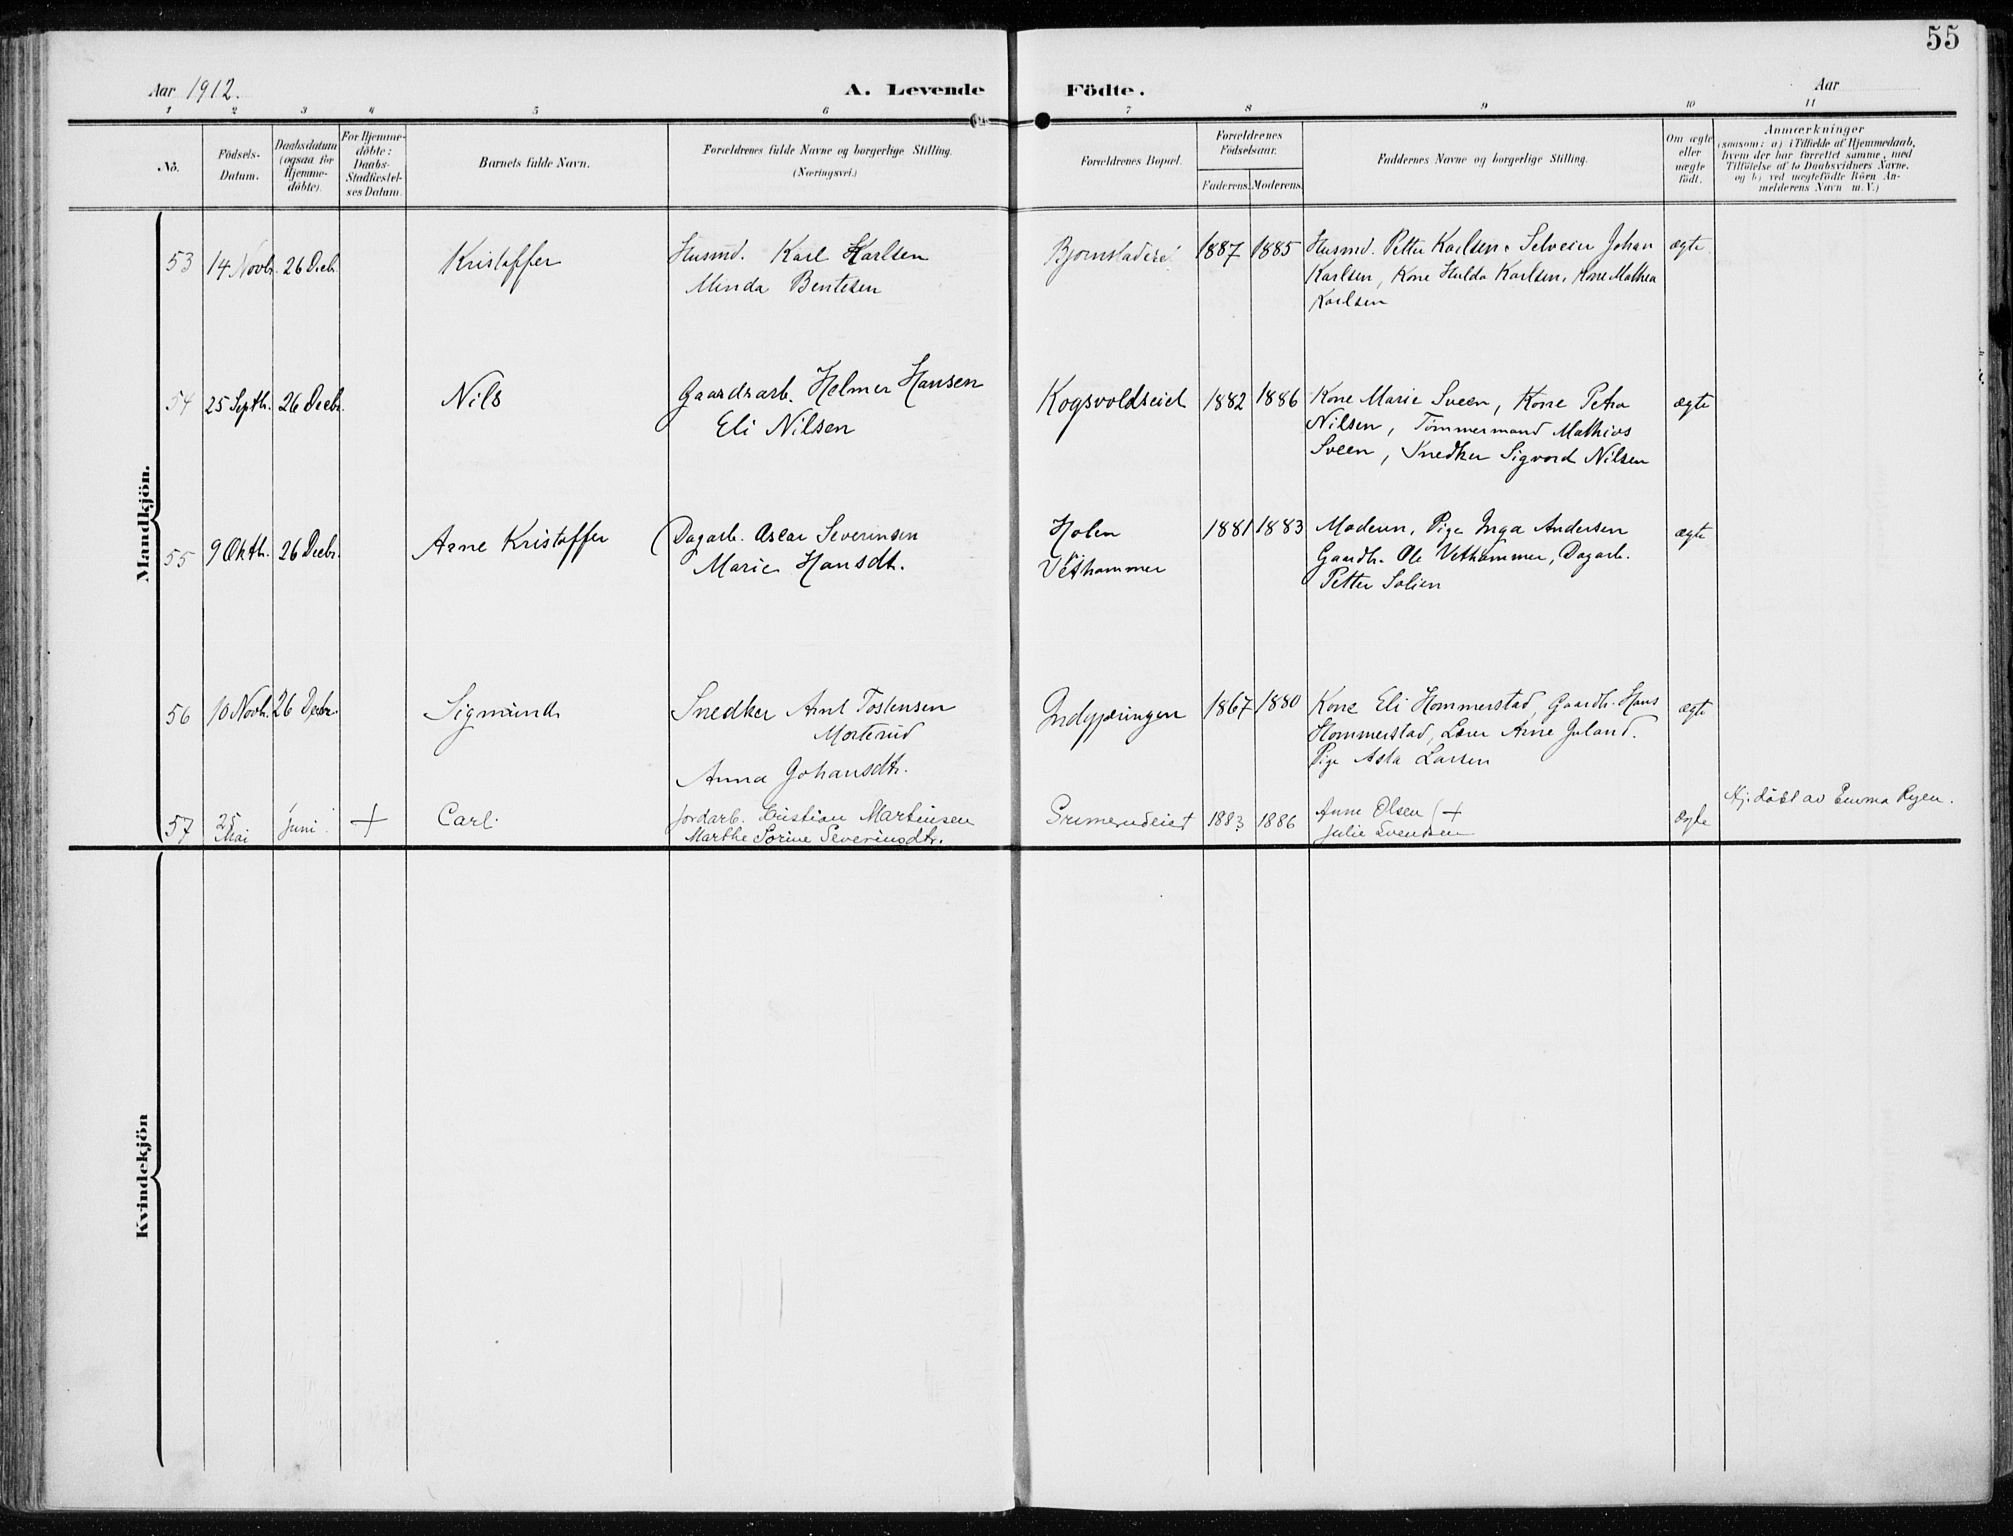 55
Aar 1912.
A. Levende Födte.
Aar
1 2 3 4 5 6 7 8 9 10 11
No.
Födsels-Datum.
Daabsdatum (ogsaa for Hjemme-döbte).
For Hjemme-döbte: Daabs-Stadfæstel-ses Datum.
Barnets fulde Navn.
Forældrenes fulde Navne og borgerlige Stilling.
(Næringsvei.)
Forældrenes Bopæl.
Forældrenes Födselsaar.
Faderens. Moderens.
Faddernes Navne og borgerlige Stilling.
Om ægte eller uægte födt.
Anmærkninger
(saasom: a) i Tilfælde af Hjemmedaab,
hvem der har forrettet samme, med
Tilföielse af to Daabsvidners Navne.
og b) ved uægtefödte Börn An-
melderens Navn m. V.)
Mandkjön.
53 14 Novb. 26 Decb. Kristoffer Husmd. Karl Karlsen 1887 1885 Husmd. Petter Karlsen. Selveier Johan ægte.
Minda Bentesen Karlsen, Kone Hulda Karlsen, Kone Mathea
Karlsen
54 25 Septb. 26 Decbr. Nils Gaardsarb. Helmer Hansen Kogsvoldseiet 1882 1886 Kone Marie Sveen, Kone Petra ægte
Eli Nilsen Nilsen, Tömmermand Mathias
Sveen, Snedker Sigvard Nilsen
55 9 Oktb. 26 Decbr. Arne Kristoffer Dagarb. Oscar Severinsen Holen 1881 1883 Moderen, Pige Inga Andersen ægte
Marie Hansdtr. Vethammer Gaardb. Ole Vethammer, Dagarb.
Petter Solien
56 10 Novb. 26 Decbr. Sigmund Snedker Arnt Tostensen 1867 1880 Kone Eli Hommerstad, Gaardb. Hans ægte
Morterud Hommerstad, Lærer Arne Juland.
Anna Johansdtr. Pige Asta Larsen
57 25 Mai Juni + Carl. Jordarb. Kristian Martinsen 1883 1886 Anne Olsen + ægte Hj. döbt av Emma Ryen.
Marthe Sorine Severinsdtr. Julie Svendsen
Kvindekjön